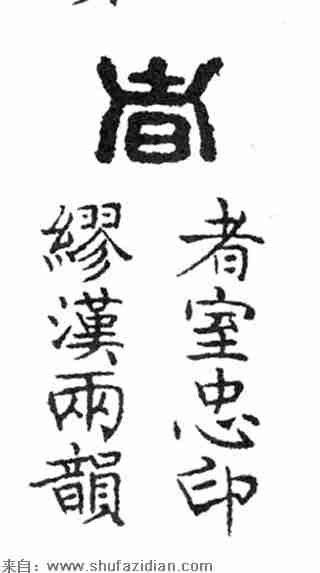 者
者室忠印
繆漢兩韻
来自：www.shufazidian.com